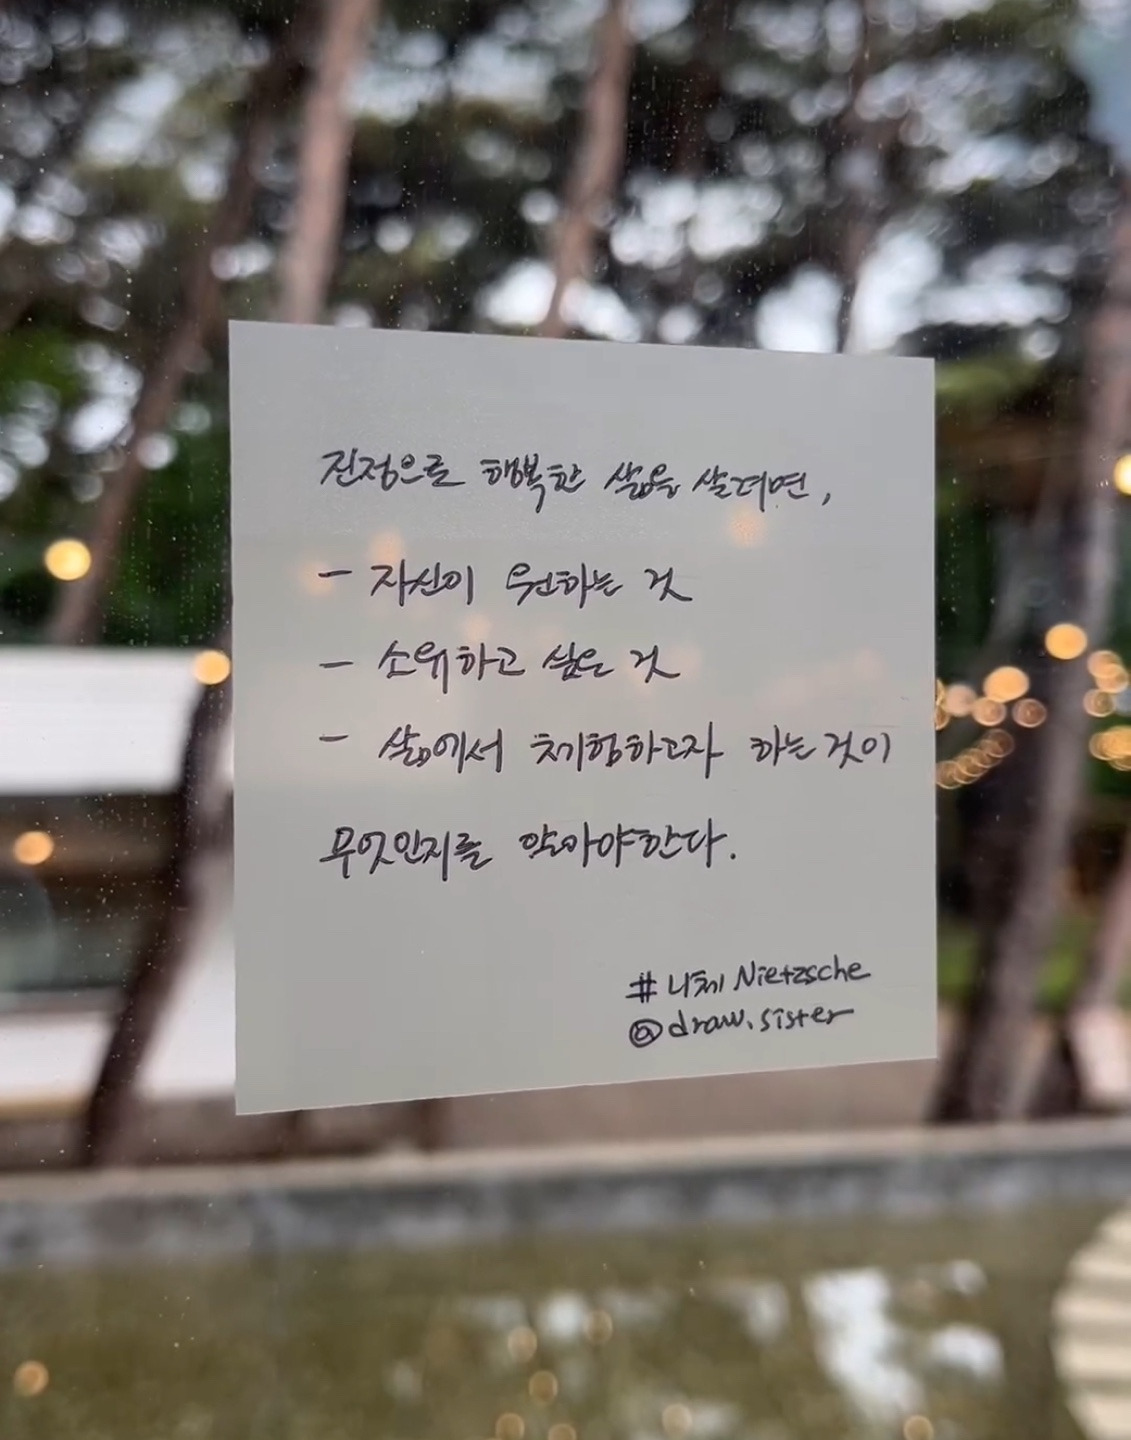 진정으로 행복한 삶을 살려면,
- 자신이 원하는 것
- 소유하고 싶은 것
- 삶에서 체험하고자 하는것이
무엇인지를 알아야한다.
#니체 Nietzsche
@draw.sister